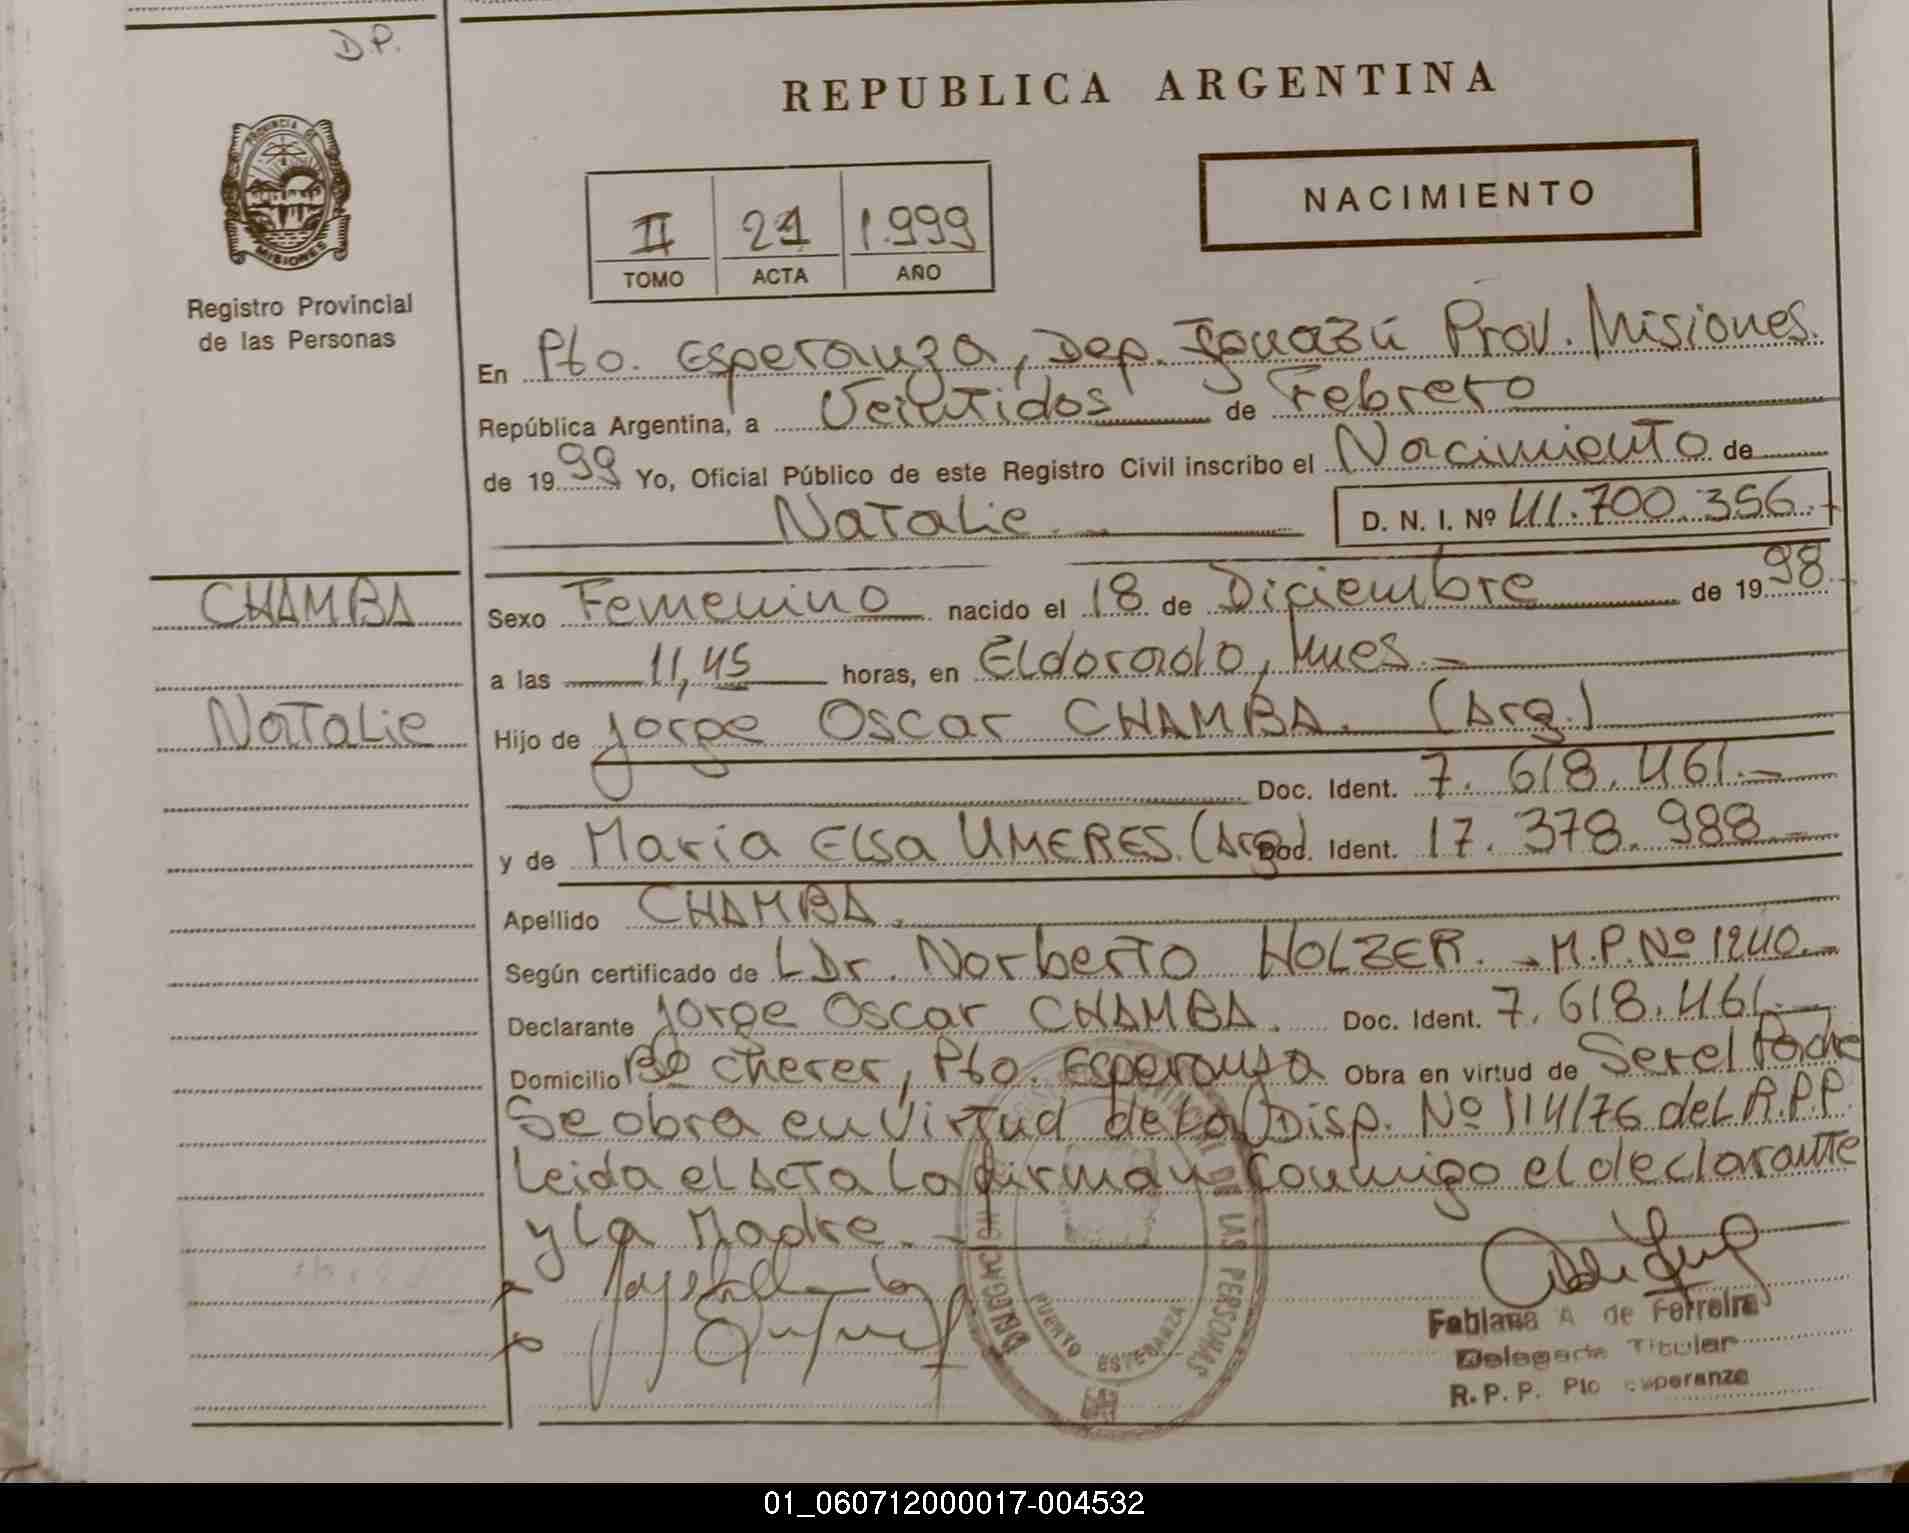 D.P.
PROVINCIA DE
MISIONES
Registro Provincial
de las Personas
REPUBLICA ARGENTINA
II 21 1.999
TOMO ACTA AÑO
NACIMIENTO
En Pto. Esperanza, Dep. Iguazú Prov. Misiones.
República Argentina, a Veintidos de Febrero
de 1999 Yo, Oficial Público de este Registro Civil inscribo el Nacimiento de
Natalie D. N. I. Nº 41.700.356.-
CHAMBA
Sexo Femenino nacido el 18 de Diciembre de 1998.-
a las 11,45 horas, en Eldorado, Mnes.-
Natalie
Hijo de Jorge Oscar CHAMBA. (Arg.)
Doc. Ident. 7.618.461.-
y de Maria Elsa UMERES. (Arg.) Doc. Ident. 17.378.988.-
Apellido CHAMBA.
Según certificado de LDr. Norberto HOLZER. - M.P.Nº 1240.-
Declarante Jorge Oscar CHAMBA. Doc. Ident. 7.618.461.-
Domicilio Bº Cherer, Pto. Esperanza Obra en virtud de Ser el Padre
Se obra en Virtud de la Disp. Nº 114/76 del R.P.P.
Leida el Acta la firman conmigo el declarante
y la Madre.-
DE LAS PERSONAS
PUERTO ESPERANZA
Fabiana A de Ferreira
Delegada Titular
R. P. P. Pto Esperanza
01_060712000017-004532